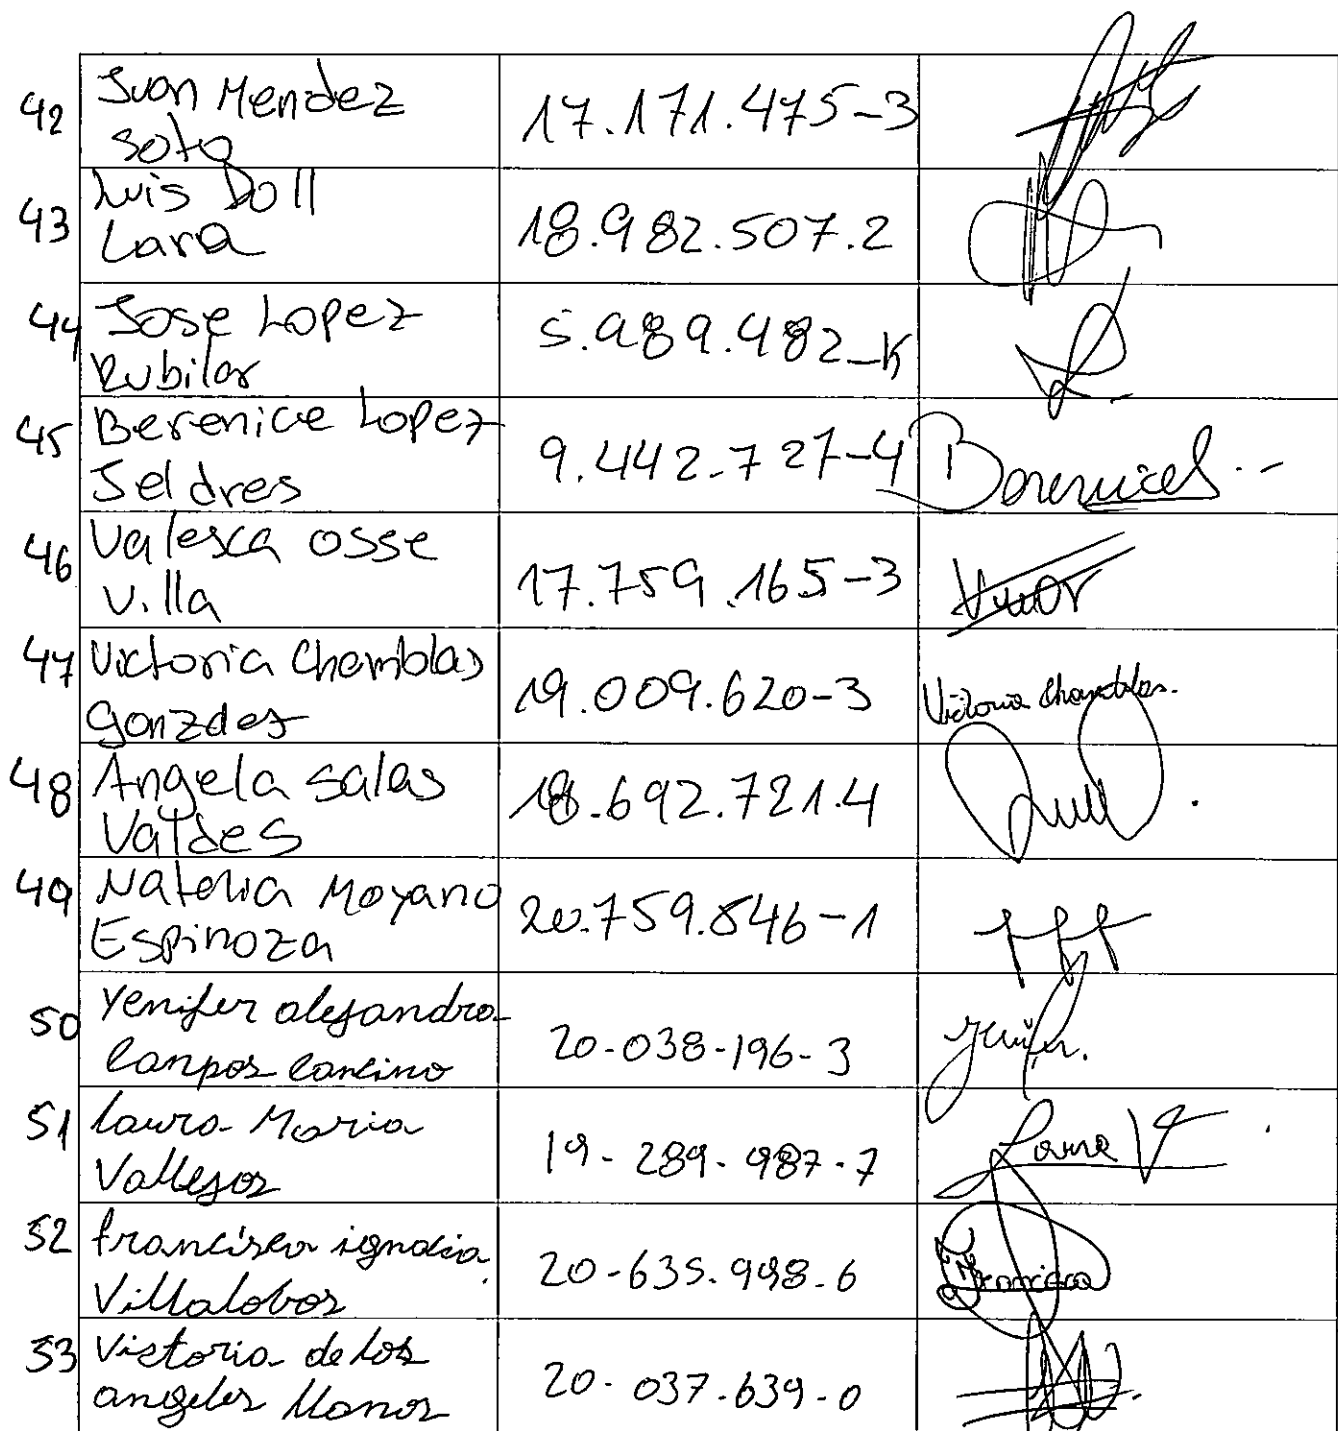 42 Juan Mendez Soto 17.171.475-3
43 Luis Doll Lara 18.982.507.2
44 Jose Lopez Rubilar 5.989.482-K
45 Berenice Lopez Jeldres 9.442.727-4 Berenice
46 Valesca osse Villa 17.759.165-3
47 Victoria Chamblas Gonzalez 19.009.620-3 Victoria Chamblas.
48 Angela Salas Valdes 18.692.721.4
49 Natalia Moyano Espinoza 20.759.846-1
50 Yenifer alejandra Campos Cancino 20-038-196-3 Yenifer.
51 Laura Maria Vallejos 19-289-987-7 Laura V
52 francisca ignacia Villalobos 20-635.998-6 Francisca
53 Victoria de los angeles Llanos 20-037.639-0